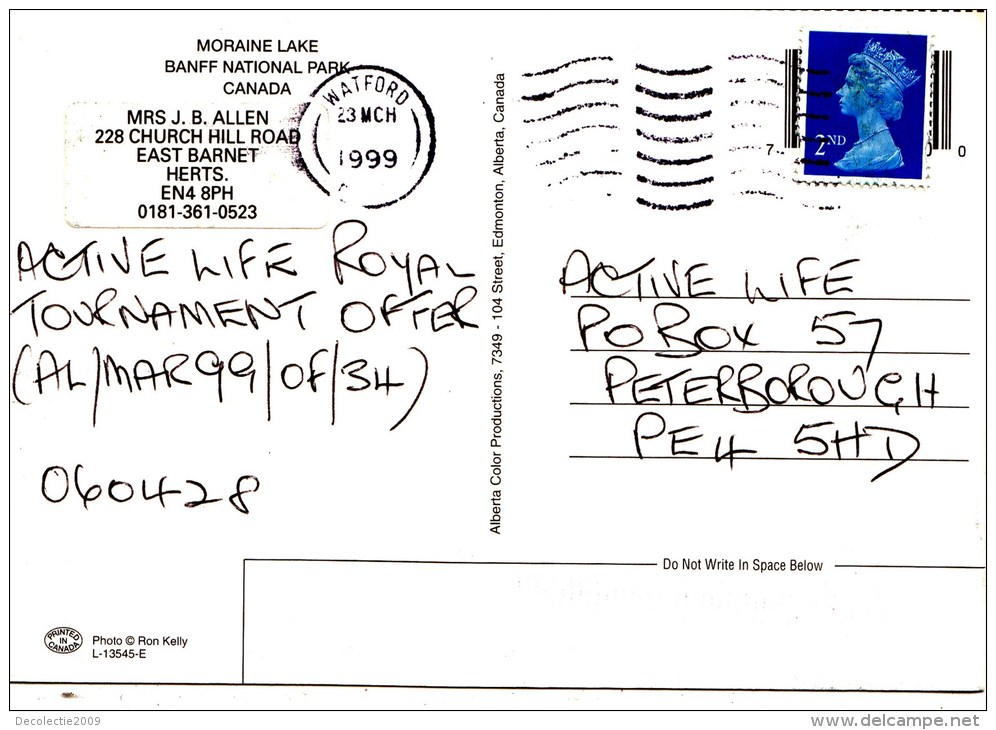 MORAINE LAKE
BANFF NATIONAL PARK
CANADA
MRS J. B. ALLEN
228 CHURCH HILL ROAD
EAST BARNET
HERTS.
EN4 8PH
0181-361-0523
WATFORD
23 MCH
1999
ACTIVE LIFE ROYAL
TOURNAMENT OFFER
(AL/MAR99/OF/34)
060428
PRINTED
IN
CANADA
Photo © Ron Kelly
L-13545-E
Alberta Color Productions, 7349 - 104 Street, Edmonton, Alberta, Canada
2ND
7
0 0
ACTIVE LIFE
PO BOX 57
PETERBOROUGH
PE4 5HD
Do Not Write In Space Below
Decolectie2009
delcampe.net